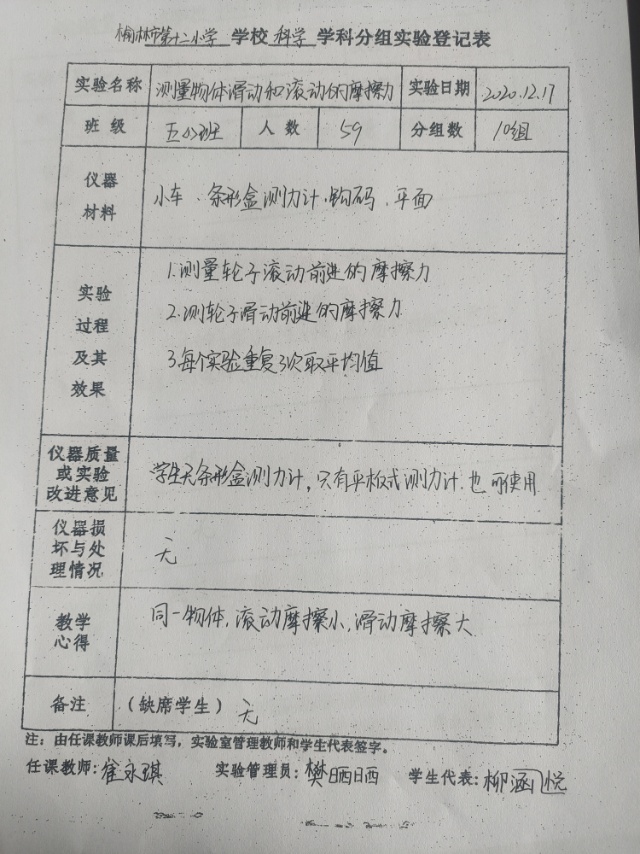 榆林市第十二小学 学校 科学 学科分组实验登记表
实验名称 测量物体滑动和滚动的摩擦力 实验日期 2020.12.17
班级 五(2)班 人数 59 分组数 10组
仪器材料 小车、条形盒测力计、钩码、平面
实验过程及其效果
1.测量轮子滚动前进的摩擦力
2.测轮子滑动前进的摩擦力
3.每个实验重复3次取平均值
仪器质量或实验改进意见 学生无条形盒测力计，只有平板式测力计.也可使用
仪器损坏与处理情况 无
教学心得 同一物体，滚动摩擦小，滑动摩擦大
备注 （缺席学生） 无
注：由任课教师课后填写，实验室管理教师和学生代表签字。
任课教师：崔永琪 实验管理员：樊晒晒 学生代表：柳涵悦